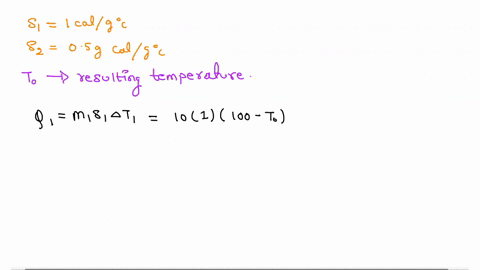 S₁ = 1 cal/g°c
S₂ = 0.5g cal/g°c
T₀ → resulting temperature.
Q₁ = m₁s₁△T₁ = 10(1)(100-T₀)